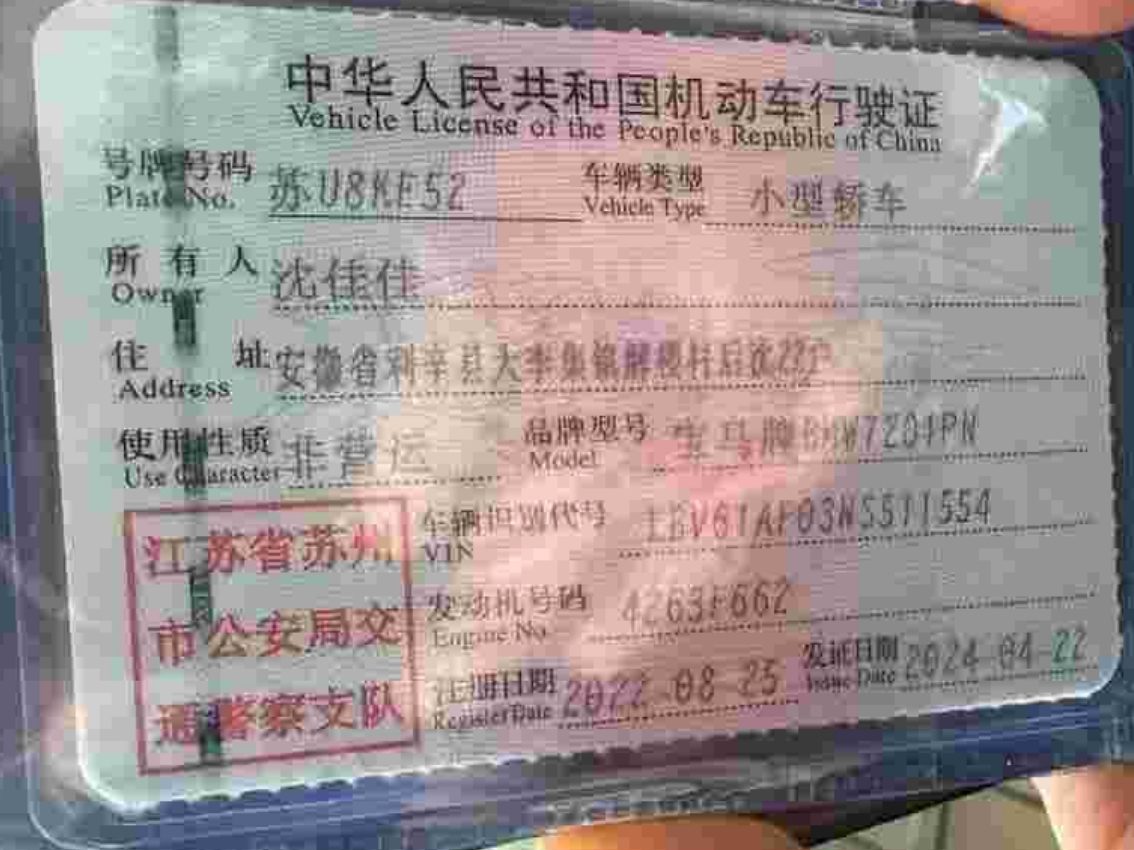 中华人民共和国机动车行驶证
Vehicle License of the People's Republic of China
号牌号码 苏U8KF52 车辆类型 小型轿车
Plate No. Vehicle Type
所有人 沈佳佳
Owner
住址 安徽省利辛县大李集镇解楼村后沈22户
Address
使用性质 非营运 品牌型号 宝马牌BMW7204PN
Use Character Model
江苏省苏州 车辆识别代号
VIN
市公安局交 发动机号码 4263F662
Engine No.
通警察支队 注册日期 2022-08-25 发证日期 2024-04-22
Register Date Issue Date